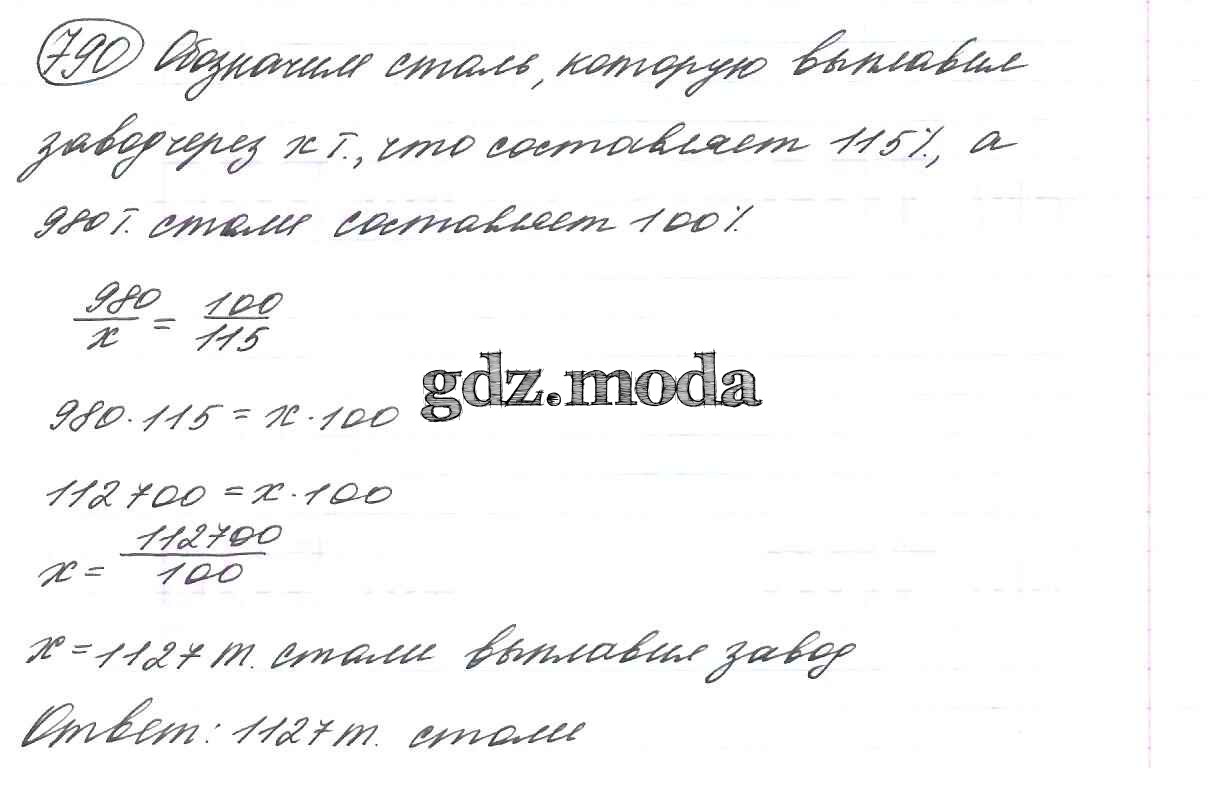 790 Обозначим сталь, которую выплавил
завод через x т., что составляет 115%, а
980 т. стали составляет 100%.
980/x = 100/115
gdz.moda
980·115 = x·100
112700 = x·100
x = 112700/100
x = 1127 т. стали выплавил завод
Ответ: 1127 т. стали